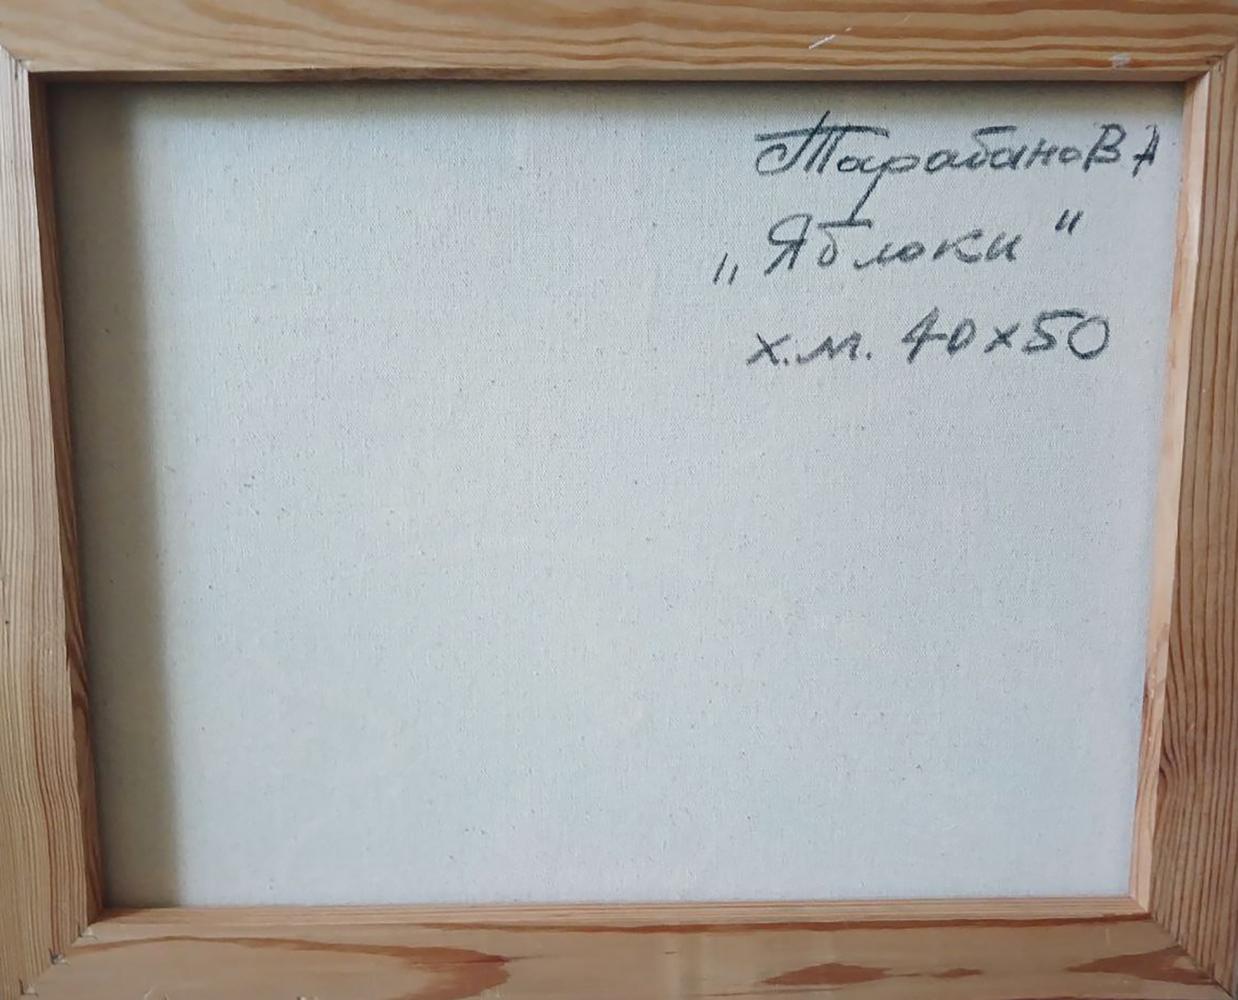 Тарабанов А
„Яблоки"
х.м. 40х50